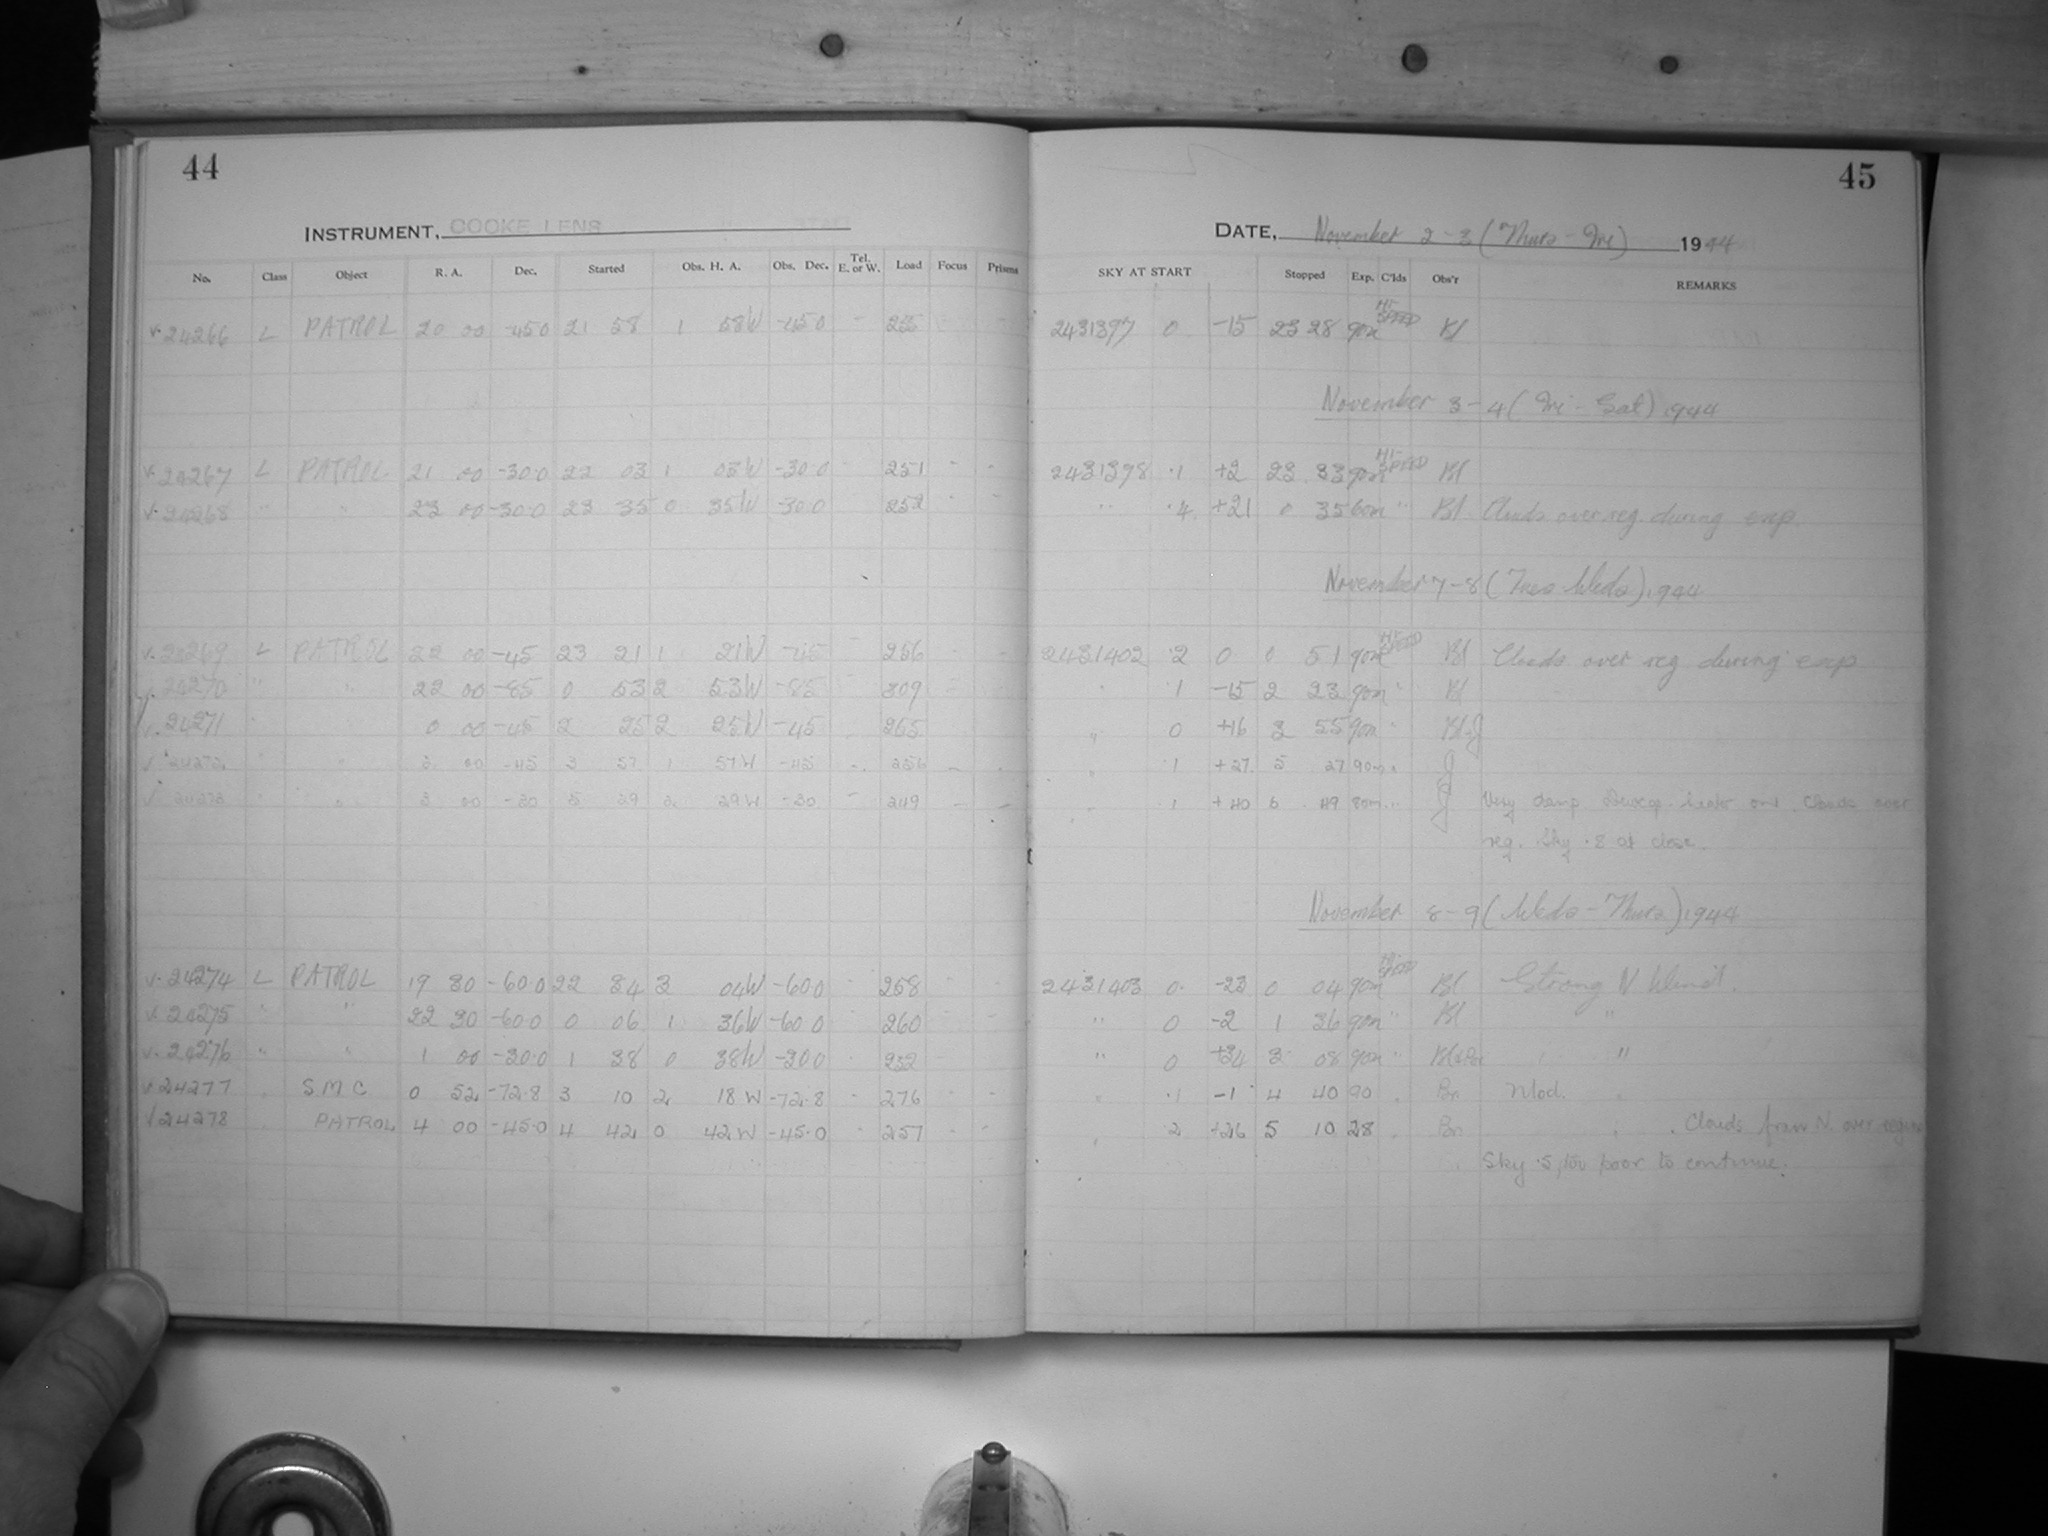 44
INSTRUMENT, COOKE LENS
No. Class Object R. A. Dec. Started Obs. H. A. Obs. Dec. Tel. E. or W. Load Focus Prisms
24266 L PATROL 20 00 -45.0 21 58 1 58W -45.0 - 255
24267 L PATROL 21 00 -30.0 22 03 1 03W -30.0 - 251 - -
24268 " " 23 00 -30.0 23 35 0 35W -30.0 252 - -
24269 L PATROL 22 00 -45 23 21 1 21W -45 - 256
24270 " " 22 00 -85 0 53 2 53W -85 - 309
24271 0 00 -45 2 25 2 25W -45 265
24272 " 3 00 -45 3 57 1 57W -45 - 256 -
24273 " 3 00 -30 5 29 2 29W -30 - 249 - -
24274 L PATROL 19 30 -60.0 22 34 3 04W -60.0 258
24275 " " 22 30 -60.0 0 06 1 36W -60.0 260
24276 " " 1 00 -30.0 1 38 0 38W -30.0 232
24277 S.M.C 0 52 -72.8 3 10 2 18W -72.8 - 276
24278 PATROL 4 00 -45.0 4 42 0 42W -45.0 257
45
DATE, November 2-3 (Thurs-Fri) 1944
SKY AT START Stopped Exp. C'lds Obs'r REMARKS
2431397 0 -15 23 28 90m HI-SPEED Bl
November 3-4 (Fri-Sat) 1944
2431398 .1 +2 23 33 90m HI-SPEED Bl
" .4 +21 0 35 60m " Bl Clouds over reg. during exp.
November 7-8 (Tues-Weds) 1944
2431402 .2 0 0 51 90m HI-SPEED Bl Clouds over reg during exp
" .1 -15 2 23 90m " Bl
" 0 +16 3 55 90m " Bl-J
" .1 +27 5 27 90m " J
" .1 +40 6 49 80m " J Very damp Dewcap heater on. Clouds over
reg. Sky .8 at close.
November 8-9 (Weds-Thurs) 1944
2431403 0 -23 0 04 90m HI-SPEED Bl Strong N Wind.
" 0 -2 1 36 90m " Bl "
" 0 +34 3 08 90m " "
" .1 -1 4 40 90 Bn Mod. "
" .2 +26 5 10 28 Bn " Clouds from N over region
Sky .5, too poor to continue.